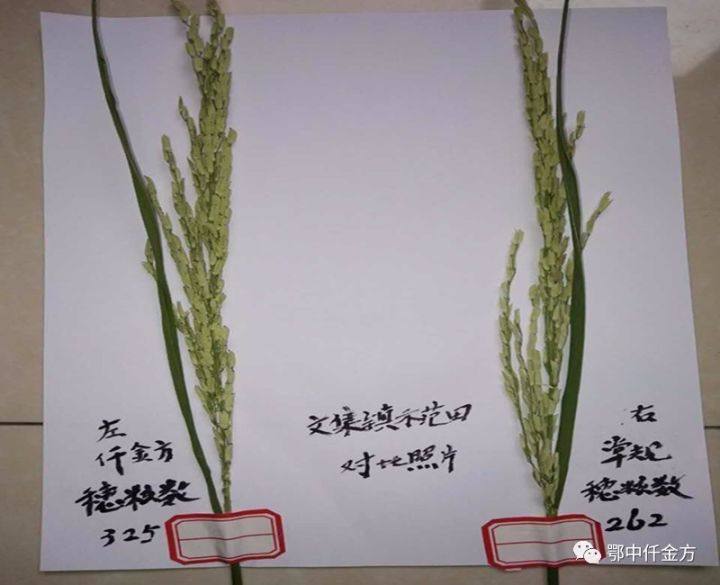 左
仟金方
穗粒数
325
文集镇示范田
对比照片
右
常规
穗粒数
262
鄂中仟金方